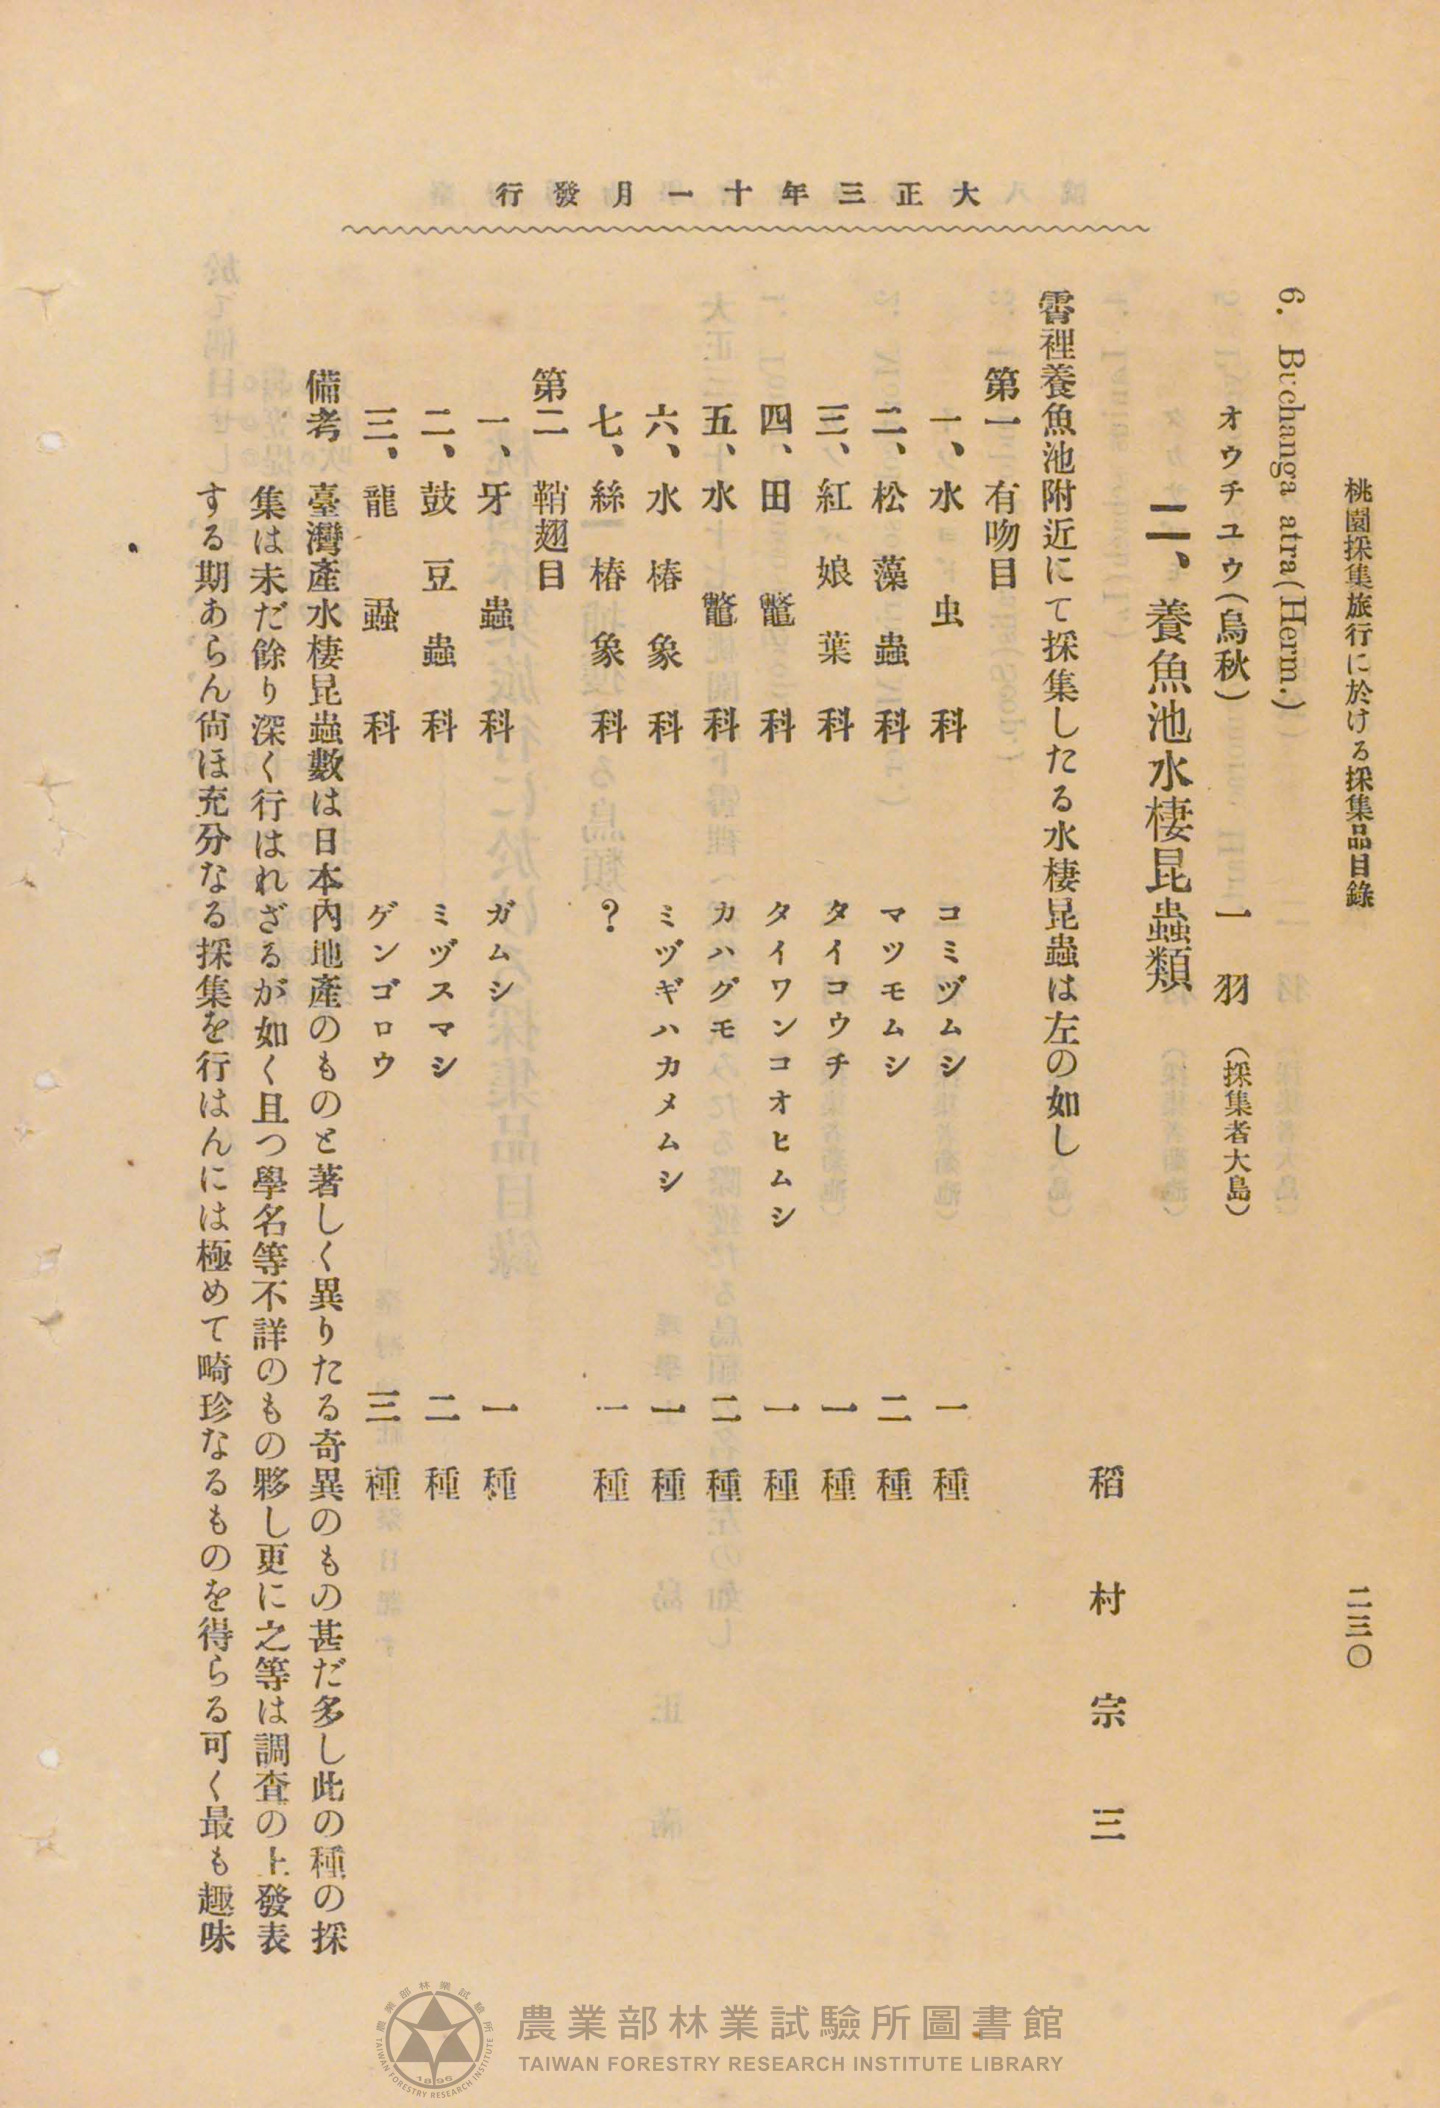 桃園採集旅行に於ける採集品目錄
二三〇
大正三年十一月發行
6. Buchanga atra (Herm.)
オウチユウ(烏秋) 一羽 (採集者大島)
二、養魚池水棲昆蟲類
稻村宗三
霄裡養魚池附近にて採集したる水棲昆蟲は左の如し
第一 有吻目
一、水虫科 コミヅムシ 一種
二、松藻蟲科 マツモムシ 二種
三、紅娘葉科 タイコウチ 一種
四、田鼈科 タイワンコオヒムシ 一種
五、水鼈科 カハグモ 二種
六、水椿象科 ミヅギハカメムシ 一種
七、絲椿象科 ? 一種
第二 鞘翅目
一、牙蟲科 ガムシ 一種
二、鼓豆蟲科 ミヅスマシ 二種
三、龍蝨科 ゲンゴロウ 三種
備考 臺灣產水棲昆蟲數は日本內地產のものと著しく異りたる奇異のもの甚だ多し此の種の採
集は未だ餘り深く行はれざるが如く且つ學名等不詳のもの夥し更に之等は調査の上發表
する期あらん尙ほ充分なる採集を行はんには極めて畸珍なるものを得らる可く最も趣味
農業部林業試驗所圖書館
TAIWAN FORESTRY RESEARCH INSTITUTE LIBRARY
農業部林業試驗所
TAIWAN FORESTRY RESEARCH INSTITUTE
1896